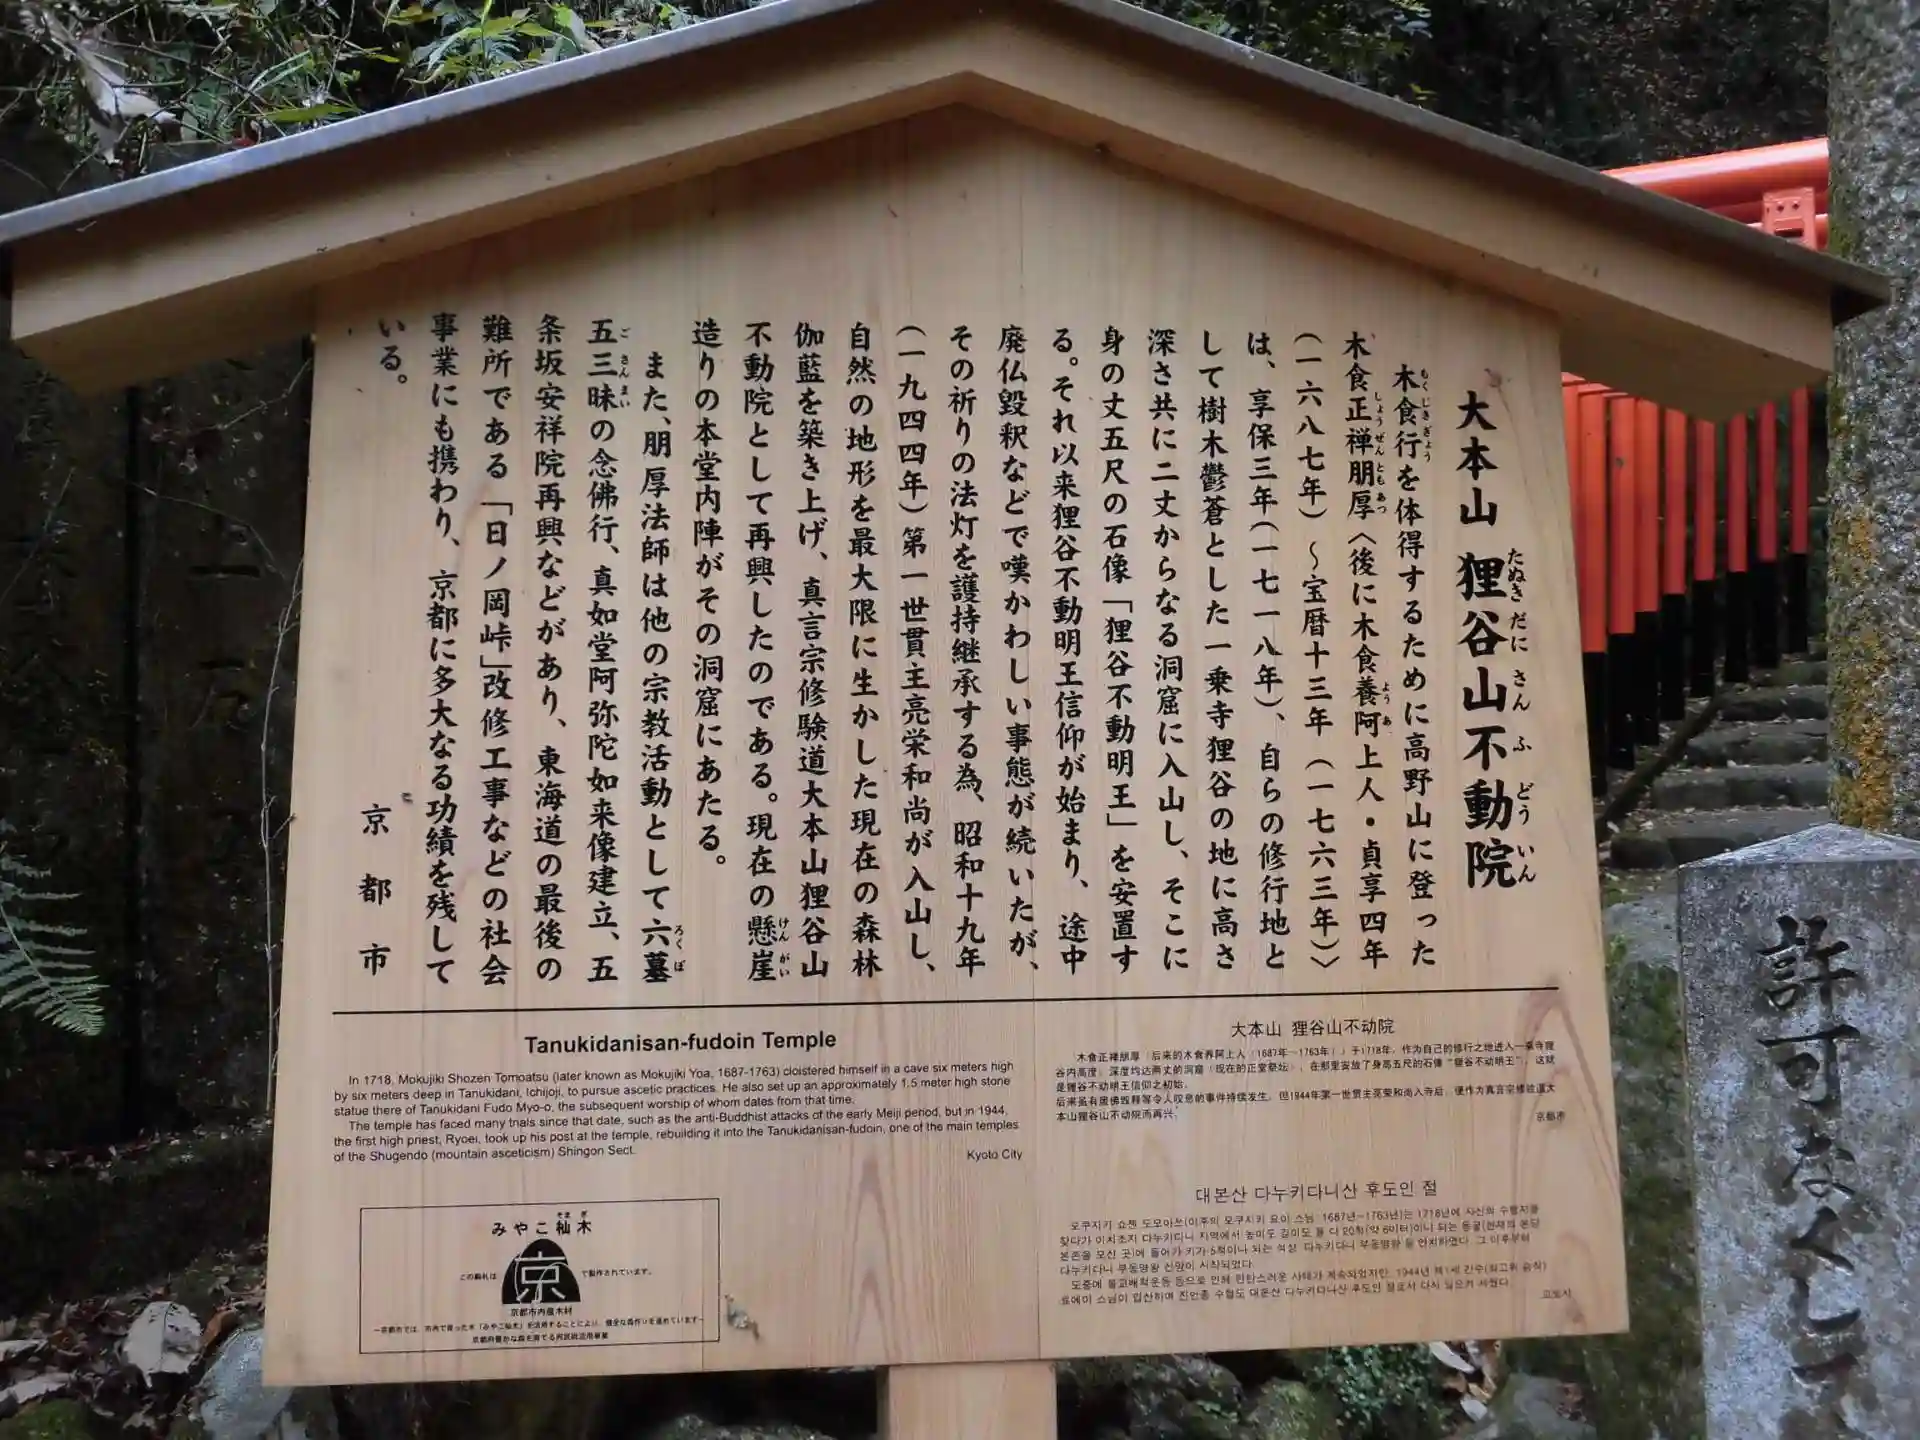 大本山 狸谷山不動院
たぬきだにさんふどういん
木食行を体得するために高野山に登った
もくじきぎょう
木食正禅朋厚〈後に木食養阿上人・貞享四年
しょうぜんともあつ
ようあ
(一六八七年)〜宝暦十三年(一七六三年)〉
は、享保三年(一七一八年)、自らの修行地と
して樹木鬱蒼とした一乗寺狸谷の地に高さ
深さ共に二丈からなる洞窟に入山し、そこに
身の丈五尺の石像「狸谷不動明王」を安置す
る。それ以来狸谷不動明王信仰が始まり、途中
廃仏毀釈などで嘆かわしい事態が続いたが、
その祈りの法灯を護持継承する為、昭和十九年
(一九四四年)第一世貫主亮栄和尚が入山し、
自然の地形を最大限に生かした現在の森林
伽藍を築き上げ、真言宗修験道大本山狸谷山
不動院として再興したのである。現在の懸崖
けんがい
造りの本堂内陣がその洞窟にあたる。
また、朋厚法師は他の宗教活動として六墓
ろくぼ
五三昧の念佛行、真如堂阿弥陀如来像建立、五
ごさんまい
条坂安祥院再興などがあり、東海道の最後の
難所である「日ノ岡峠」改修工事などの社会
事業にも携わり、京都に多大なる功績を残して
いる。
京都市
Tanukidanisan-fudoin Temple
In 1718, Mokujiki Shozen Tomoatsu (later known as Mokujiki Yoa, 1687-1763) cloistered himself in a cave six meters high
by six meters deep in Tanukidani, Ichijoji, to pursue ascetic practices. He also set up an approximately 1.5 meter high stone
statue there of Tanukidani Fudo Myo-o, the subsequent worship of whom dates from that time.
The temple has faced many trials since that date, such as the anti-Buddhist attacks of the early Meiji period, but in 1944,
the first high priest, Ryoei, took up his post at the temple, rebuilding it into the Tanukidanisan-fudoin, one of the main temples
of the Shugendo (mountain asceticism) Shingon Sect.
Kyoto City
大本山 狸谷山不动院
木食正禅朋厚（后来的木食养阿上人（1687年～1763年））于1718年，作为自己的修行之地进入一乘寺狸
谷内高度、深度均达两丈的洞窟（现在的正堂祭坛），在那里安放了身高五尺的石像“狸谷不动明王”，这就
是狸谷不动明王信仰之初始。
后来虽有废佛毁释等令人叹息的事件持续发生，但1944年第一世贯主亮荣和尚入寺后，便作为真言宗修验道大
本山狸谷山不动院而再兴。
京都市
대본산 다누키다니산 후도인 절
모쿠지키 쇼젠 도모아쓰(이후의 모쿠지키 요아 스님: 1687년~1763년)는 1718년에 자신의 수행지를
다누키다니 부동명왕 신앙이 시작되었다.
교토시
みやこ杣木
そまぎ
この駒札は
京
で製作されています。
京都市内産木材
ー京都市では、市内で育った木「みやこ杣木」を活用することにより、健全な森作りを進めていますー
京都府豊かな森を育てる府民税活用事業
許可なくして